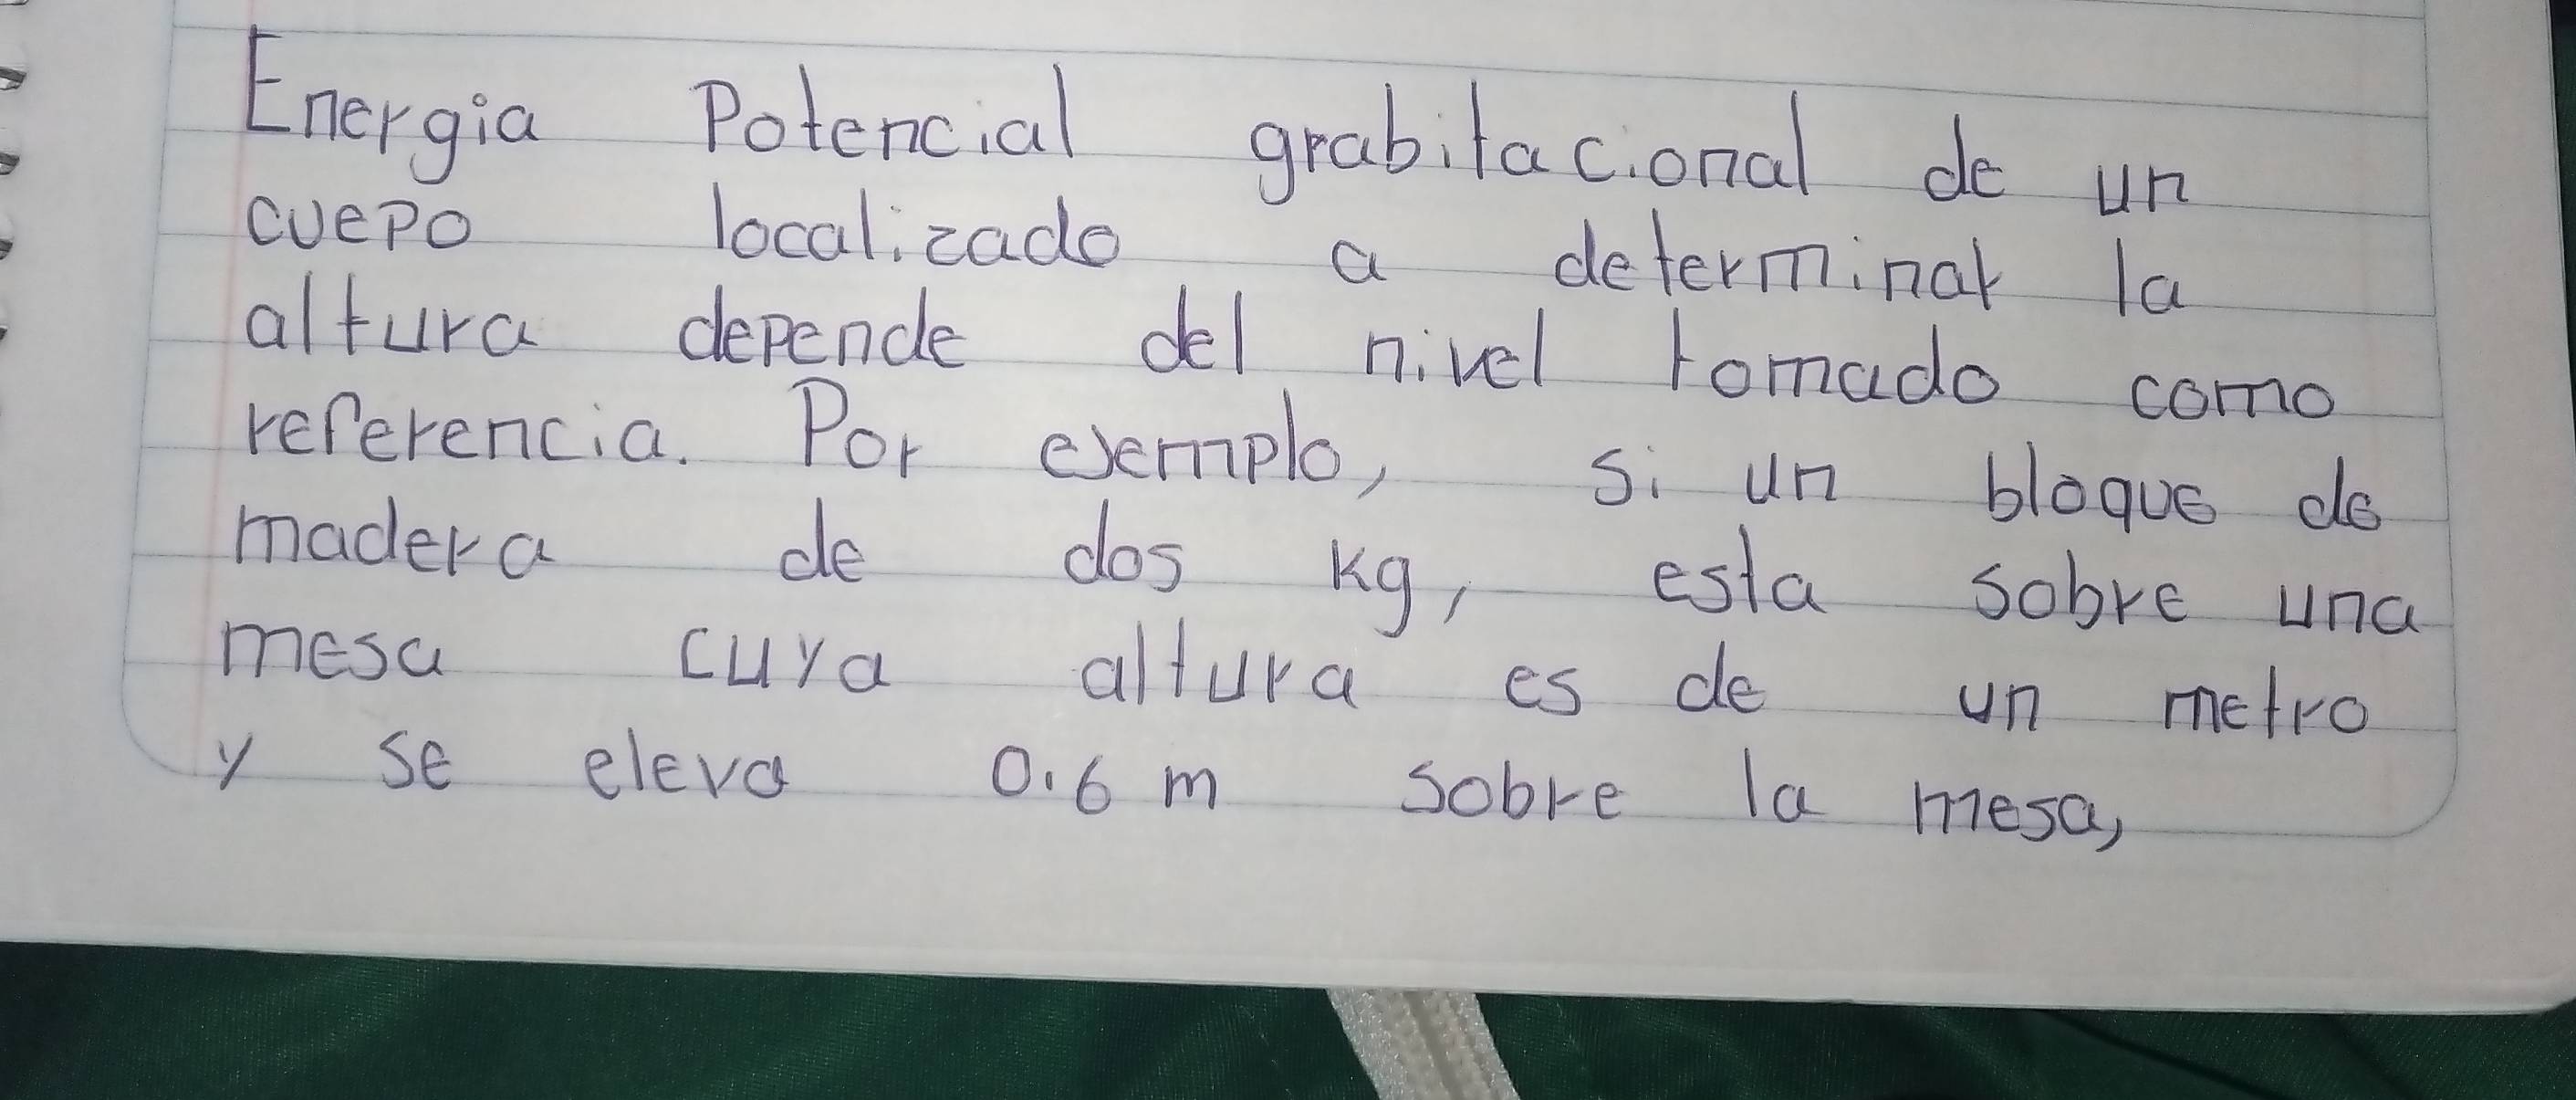 Energia Potencial grabitacional de un
cuepo localizado a determinar la
altura depende del nivel tomado como
referencia. Por ejemplo, si un bloque de
madera de dos kg, esta sobre una
mesa cuya altura es de un metro
y se eleva 0.6 m sobre la mesa,